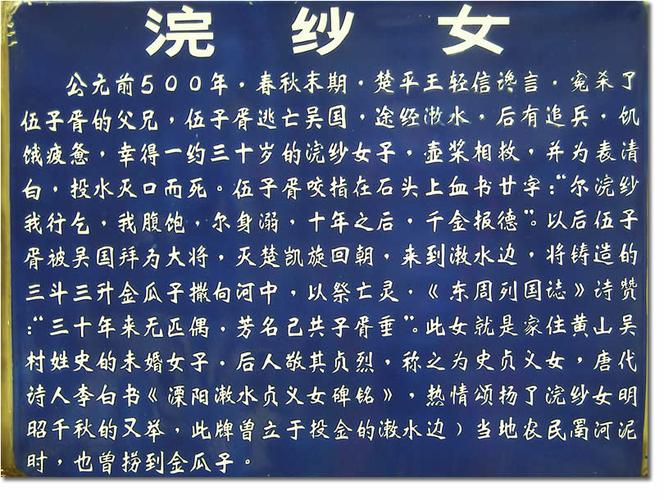 浣纱女
公元前500年，春秋末期，楚平王轻信谗言，冤杀了
伍子胥的父兄，伍子胥逃亡吴国，途经濑水，后有追兵，饥
饿疲惫，幸得一约三十岁的浣纱女子，壶浆相救，并为表清
白，投水灭口而死。伍子胥咬指在石头上血书廿字：“尔浣纱
我行乞，我腹饱，尔身溺，十年之后，千金报德”。以后伍子
胥被吴国拜为大将，灭楚凯旋回朝，来到濑水边，将铸造的
三斗三升金瓜子撒向河中，以祭亡灵，《东周列国誌》诗赞
：“三十年来无匹偶，芳名已共子胥垂”。此女就是家住黄山吴
村姓史的未婚女子，后人敬其贞烈，称之为史贞义女，唐代
诗人李白书《溧阳濑水贞义女碑铭》，热情颂扬了浣纱女明
昭千秋的义举，此牌曾立于投金的濑水边）当地农民罱河泥
时，也曾捞到金瓜子。